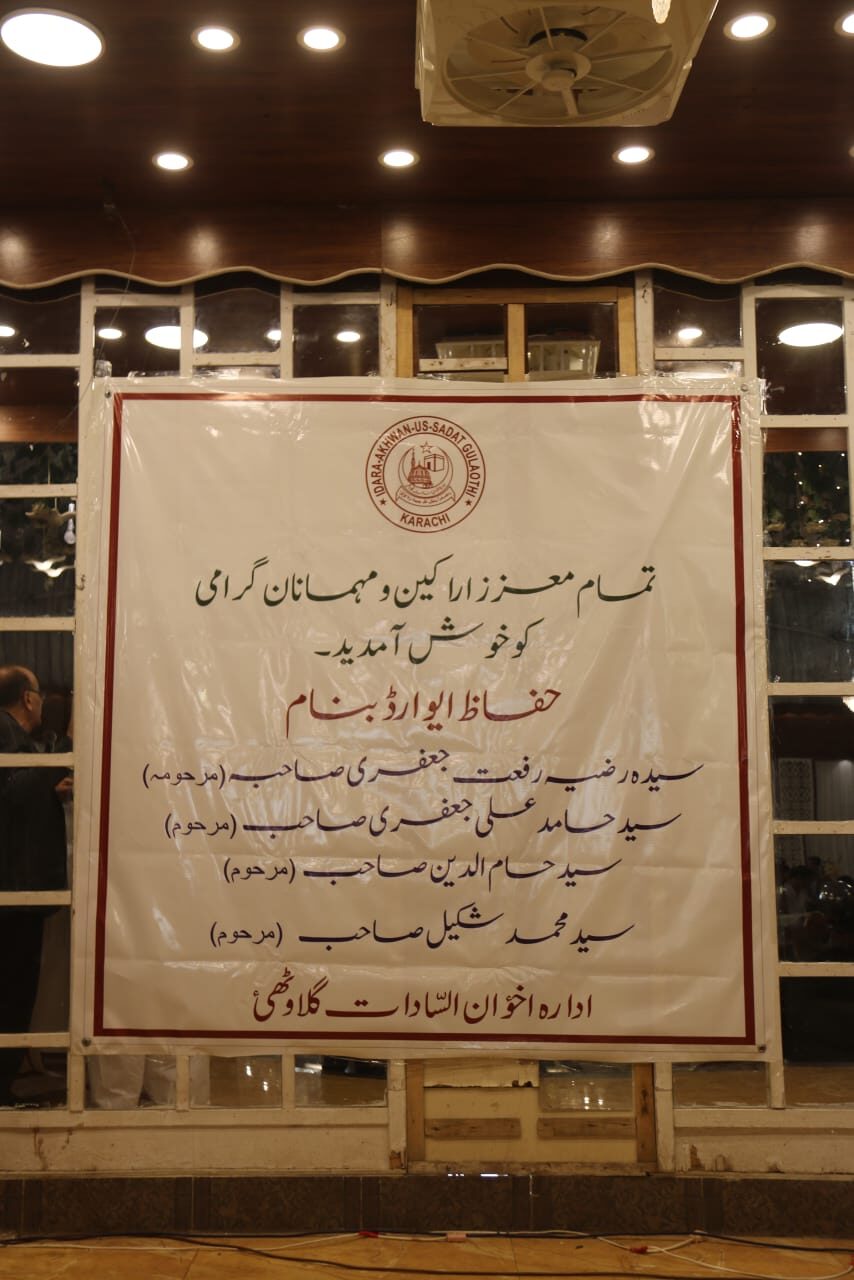 IDARA-AKHWAN-US-SADAT GULAOTHI
KARACHI
تمام معزز اراکین و مہمانان گرامی
کو خوش آمدید۔
حفاظ ایوارڈ بنام
سیدہ رضیہ رفعت جعفری صاحبہ (مرحومہ)
سید حامد علی جعفری صاحب (مرحوم)
سید حسام الدین صاحب (مرحوم)
سید محمد شکیل صاحب (مرحوم)
ادارہ اخوٰان السّادات گلاوٹھیٔ